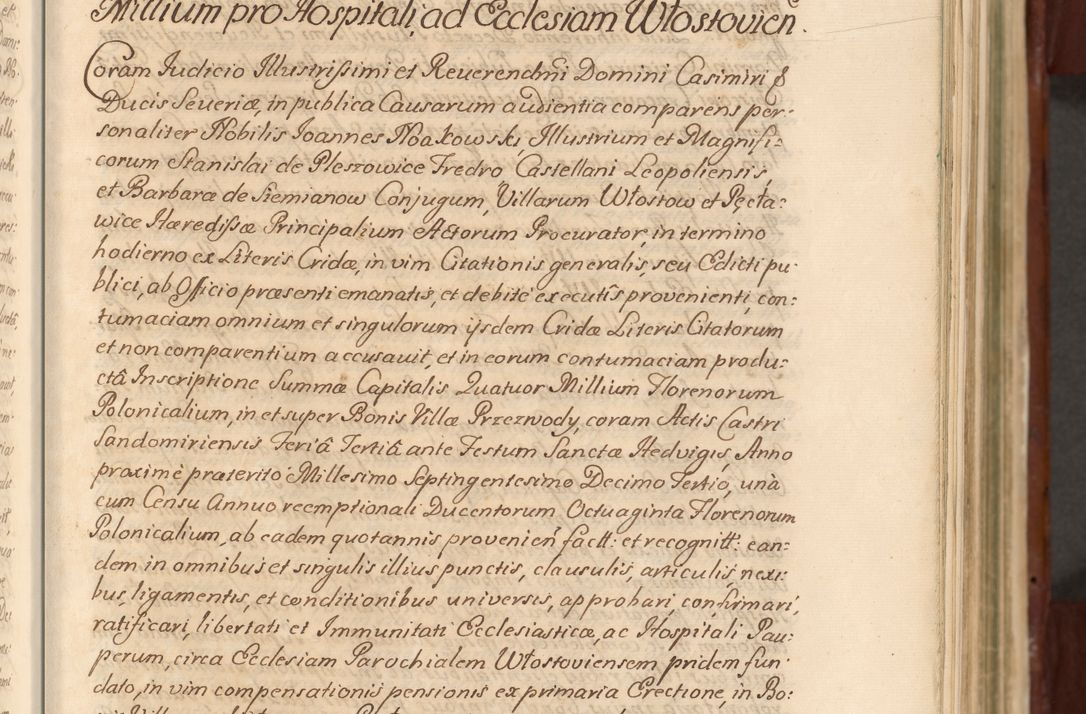 Millium pro Hospitali, ad Ecclesiam Włostovien.
Coram Iudicio Illustrissimi et Reverendmi Domini Casimiri &
Ducis Severiæ, in publica Causarum audientia comparens per-
sonaliter Nobilis Ioannes Noakowski, Illustrium et Magnifi-
corum Stanislai de Pleszowice Fredro Castellani Leopoliensis,
et Barbaræ de Siemianow Conjugum, Villarum Włostow et Pęcła-
wice Hæredissæ Principalium Actorum Procurator, in termino
hodierno ex Literis Cridæ, in vim Citationis generalis, seu Edicti pu-
blici, ab Officio præsenti emanatis, et debite executis provenienti, con-
tumaciam omnium et singulorum ijsdem Cridæ Literis Citatorum
et non comparentium accusavit, et in eorum contumaciam produ-
ctâ Inscriptione Summæ Capitalis Quatuor Millium Florenorum
Polonicalium, in et super Bonis Villæ Przezwody, coram Actis Castri
Sandomiriensis Feriâ Tertiâ ante Festum Sanctæ Hedvigis, Anno
proximè præterito Millesimo Septingentesimo Decimo Tertio, unà
cum Censu Annuo reemptionali Ducentorum Octuaginta Florenorum
Polonicalium, ab eadem quotannis provenien fact: et recognitt: ean-
dem in omnibus et singulis illius punctis, clausulis, articulis, nexi-
bus, ligamentis, et conditionibus universis, approbari, confirmari,
ratificari, libertati et Immunitati Ecclesiasticæ, ac Hospitali Pau-
perum, circa Ecclesiam Parochialem Włostoviensem pridem fun-
dato, in vim compensationis pensionis ex primaria Erectione, in Bo-